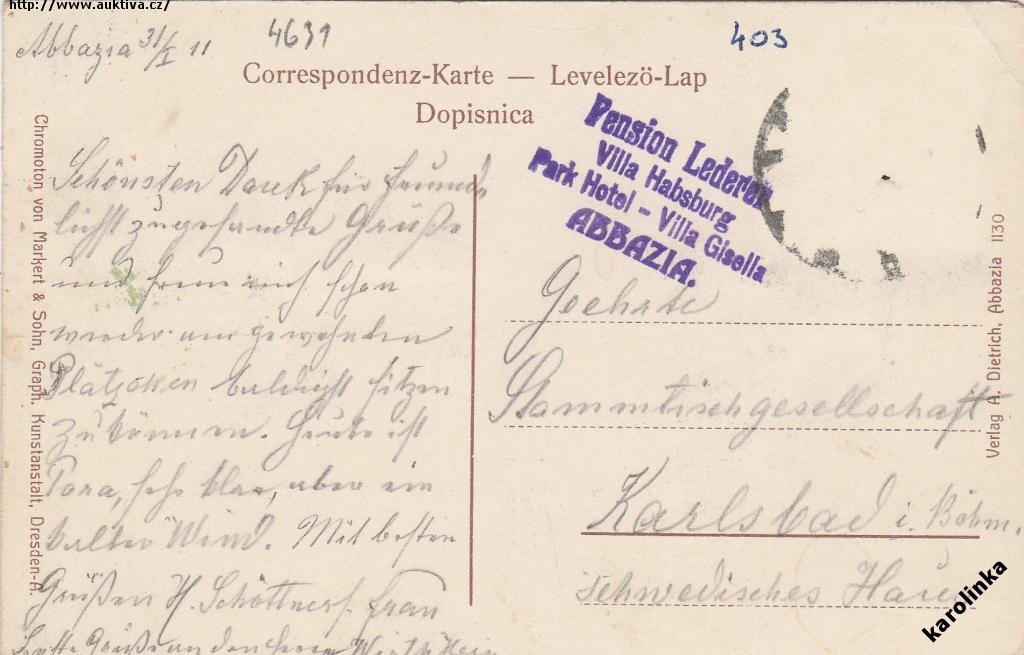 http://www.auktiva.cz/
Abbazia 31/I 11
4631
403
Correspondenz-Karte — Levelezö-Lap
Dopisnica
Pension Lederer
Villa Habsburg
Park Hotel - Villa Gisella
ABBAZIA.
Schönsten Dank für freund-
lichst zugesandte Grüße
und freue mich schon
wieder am gewohnten
Plätzchen baldigst sitzen
zu können. Heute ist
sehr klar, aber ein
kalter Wind. Mit besten
Grüßen H. Schöttner s. Frau
Grüße an den Herrn Wirth
Geehrte
Stammtischgesellschaft
Karlsbad i. Böhm.
schwedisches Haus
Chromoton von Markert & Sohn, Graph. Kunstanstalt, Dresden-A.
Verlag A. Dietrich, Abbazia 1130
karolinka